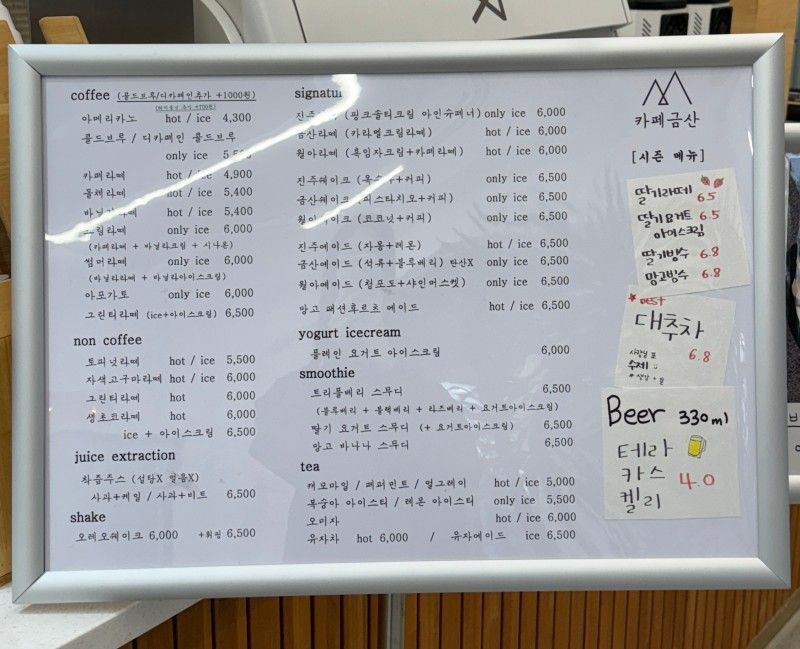 coffee (콜드브루/디카페인추가 +1000원)
아메리카노 hot / ice 4,300
콜드브루 / 디카페인 콜드브루
only ice
카페라떼 hot / ice 4,900
돌체라떼 hot / ice 5,400
hot / ice 5,400
only ice 6,000
(카페라떼 + 바닐라크림 + 시나몬)
썸머라떼 only ice 6,000
(바닐라라떼 + 바닐라아이스크림)
아포가토 only ice 6,000
그린티라떼 (ice+아이스크림) 6,500
non coffee
토피넛라떼 hot / ice 5,500
자색고구마라떼 hot / ice 6,000
그린티라떼 hot 6,000
생초코라떼 hot 6,000
ice + 아이스크림 6,500
juice extraction
착즙주스 (설탕X 얼음X)
사과+케일 / 사과+비트 6,500
shake
오레오쉐이크 6,000 +휘핑 6,500
진주라떼 (핑크솔티크림 아인슈페너) only ice 6,000
금산라떼 (카라멜크림라떼) hot / ice 6,000
월아라떼 (흑임자크림+카페라떼) hot / ice 6,000
진주쉐이크 +커피) only ice 6,500
금산쉐이크 (피스타치오+커피) only ice 6,500
(코코넛+커피) only ice 6,500
진주에이드 (자몽+레몬) hot / ice 6,500
금산에이드 (석류+블루베리) 탄산X only ice 6,500
월아에이드 (청포도+샤인머스켓) only ice 6,500
망고 패션후르츠 에이드 hot / ice 6,500
yogurt icecream
플레인 요거트 아이스크림 6,000
smoothie
트리플베리 스무디 6,500
(블루베리 + 블랙베리 + 라즈베리 + 요거트아이스크림)
딸기 요거트 스무디 (+ 요거트아이스크림) 6,500
망고 바나나 스무디 6,500
tea
캐모마일 / 페퍼민트 / 얼그레이 hot / ice 5,000
복숭아 아이스티 / 레몬 아이스티 only ice 5,500
오미자 hot / ice 6,000
유자차 hot 6,000 / 유자에이드 ice 6,500
카페금산
[시즌 메뉴]
딸기라떼 6.5
딸기요거트 6.5
아이스크림
딸기빙수 6.8
망고빙수 6.8
BEST
대추차
6.8
수제
Beer 330ml
테라
카스 4.0
켈리